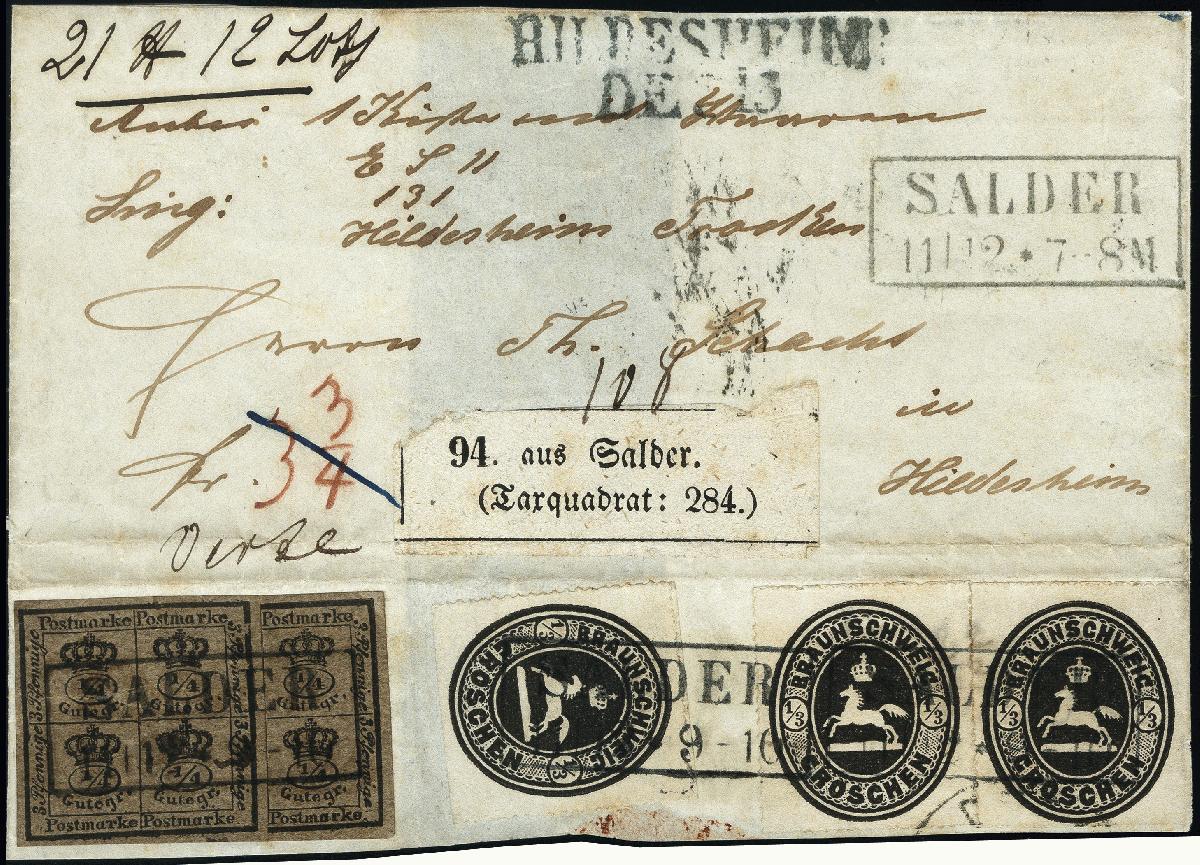 21 12 Loth
HILDESHEIM
DE 13
1 Kiste mit Waaren
E S 11
131
Sing:
Hildesheim Trocken
SALDER
11|12 * 7-8M
Herrn Th. Schacht
108
in
3 3/4
94. aus Salder.
(Taxquadrat: 284.)
fr.
Hildesheim
Postmarke Postmarke Postmarke
3 Pfennige 3 Pfennige
1/4 1/4 1/4
Gutegr. Gutegr. Gutegr.
1/4 1/4 1/4
Gutegr. Gutegr. Gutegr.
Postmarke Postmarke Postmarke
SALDER
BRAUNSCHWEIG
1/3 1/3
GROSCHEN
DER
9-10
BRAUNSCHWEIG
1/3 1/3
GROSCHEN
BRAUNSCHWEIG
1/3 1/3
GROSCHEN